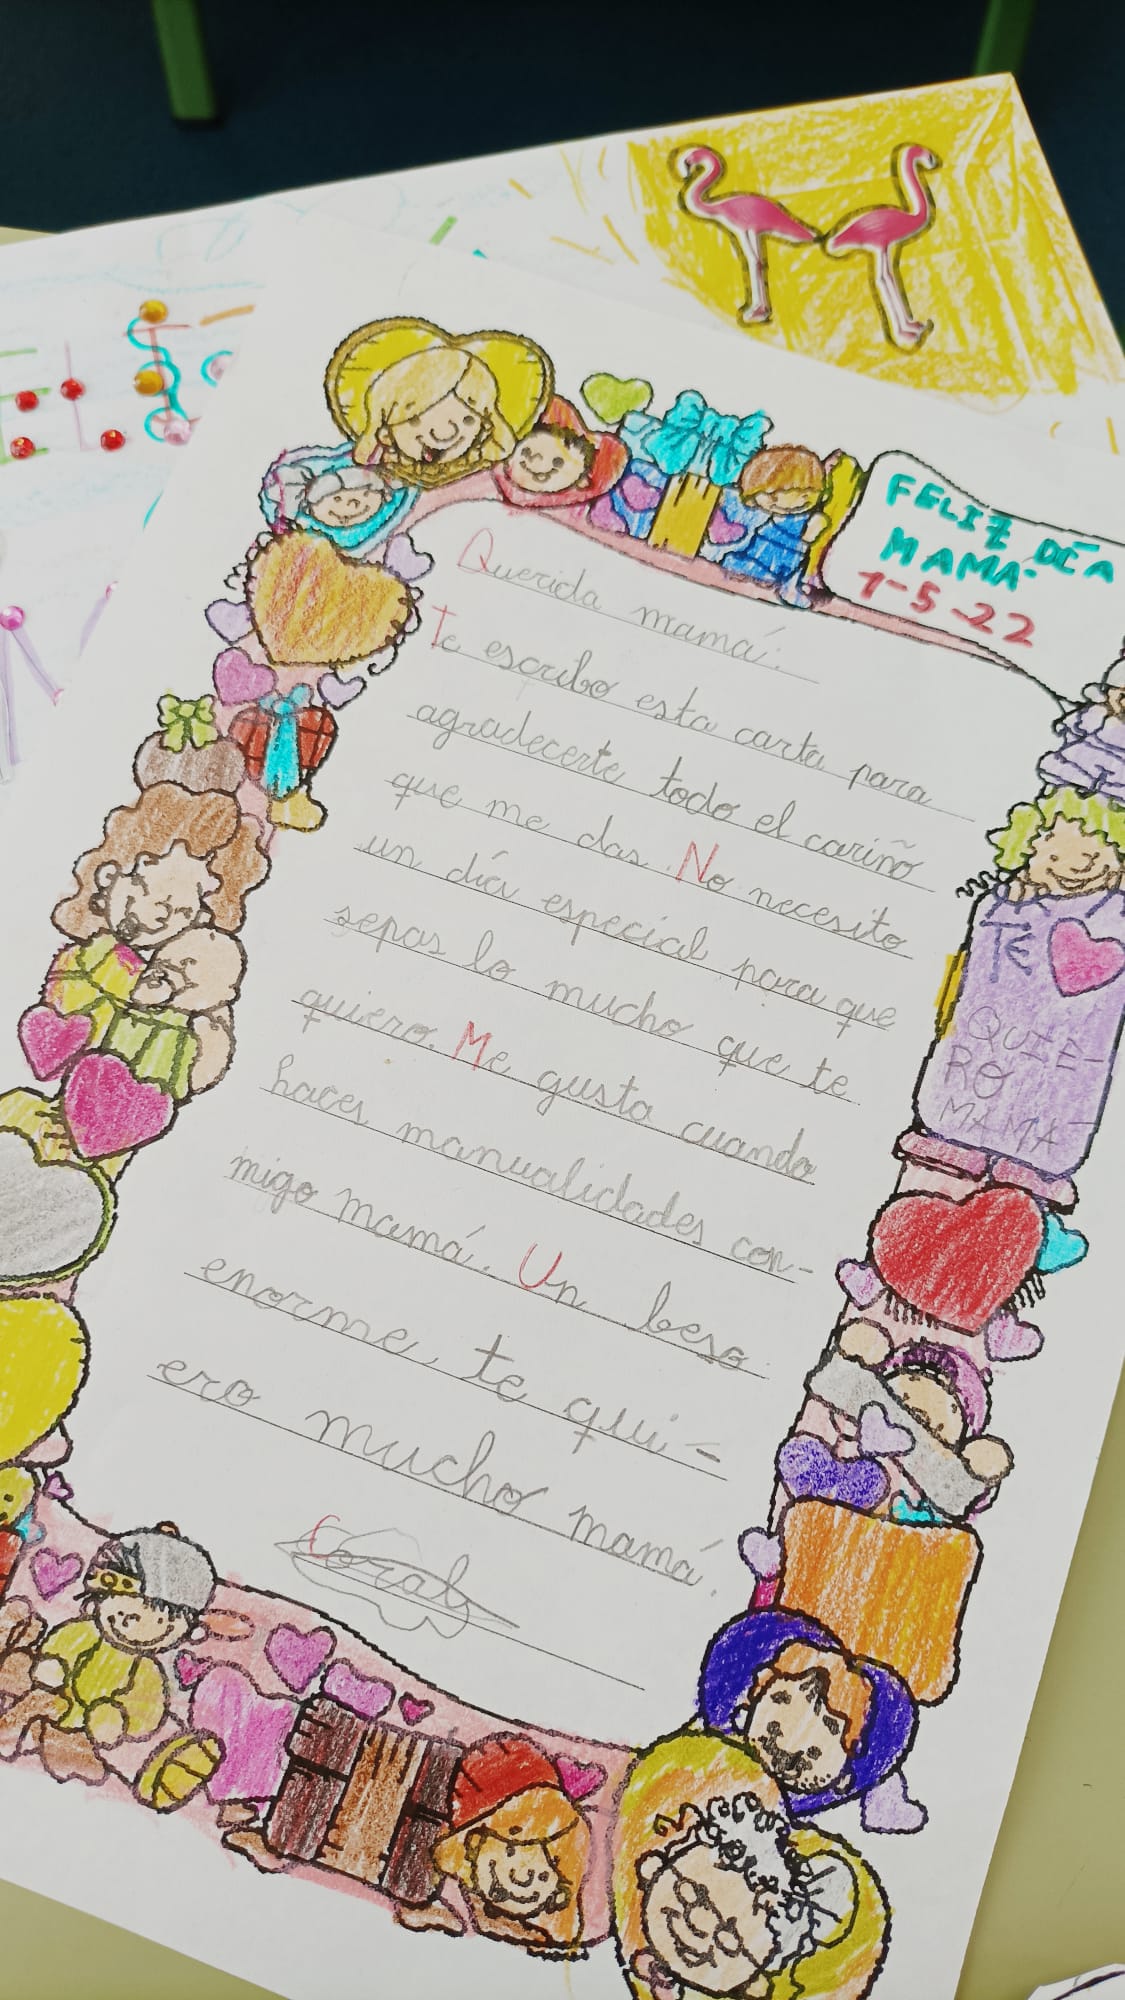 FELIZ DÍA
MAMÁ
1-5-22
Querida mamá:
Te escribo esta carta para
agradecerte todo el cariño
que me das. No necesito
un día especial para que
sepas lo mucho que te
quiero. Me gusta cuando
haces manualidades con-
migo mamá. Un beso
enorme, te qui-
ero mucho mamá.
Coral
TE
QUIE-
RO
MAMÁ